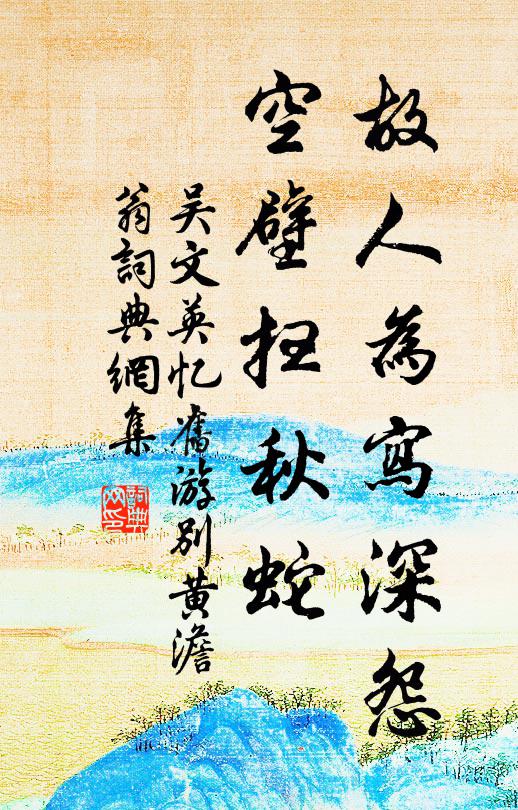 故人為寫深怨
空壁扫秋蛇
吴文英忆舊游别黄澹
翁詞典網集
詞典网印